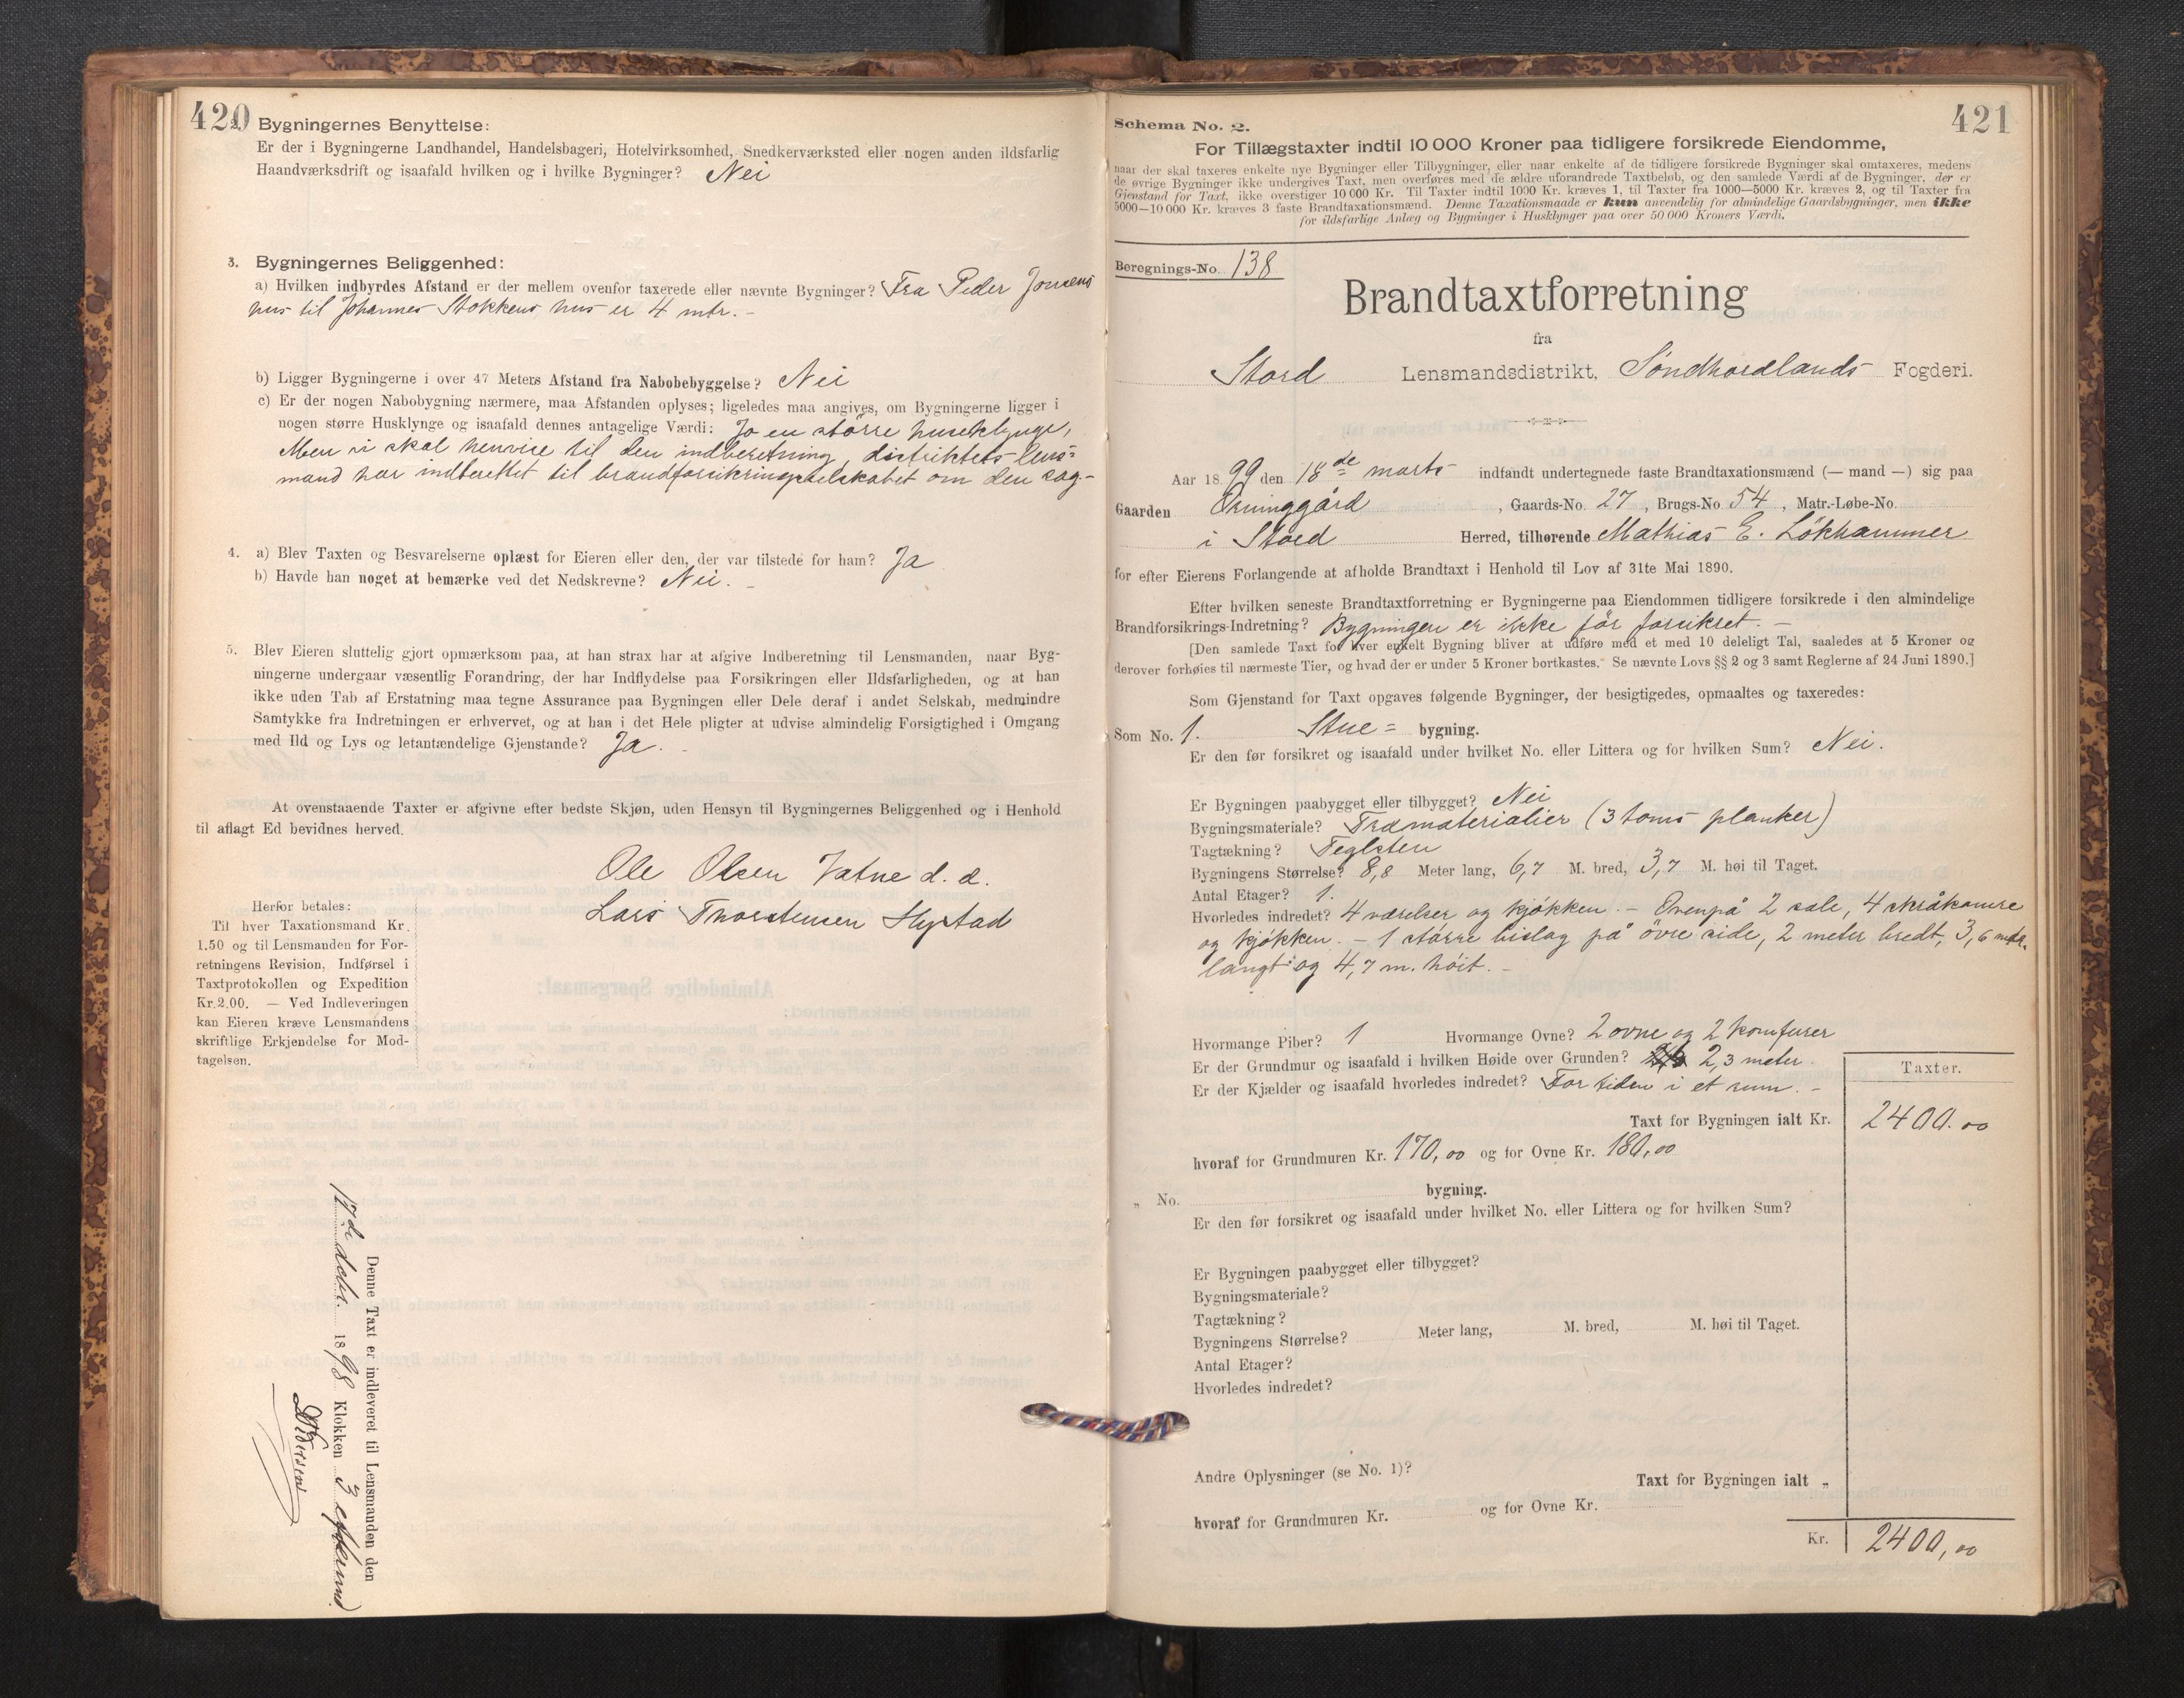 420
2. Bygningernes Benyttelse:
Er der i Bygningerne Landhandel, Handelsbageri, Hotelvirksomhed, Snedkerværksted eller nogen anden ildsfarlig
Haandværksdrift og isaafald hvilken og i hvilke Bygninger? Nei
3. Bygningernes Beliggenhed:
a) Hvilken indbyrdes Afstand er der mellem ovenfor taxerede eller nævnte Bygninger? Fra Peder Jonsens
hus til Johannes Stokkens hus er 4 mtr. -
b) Ligger Bygningerne i over 47 Meters Afstand fra Nabobebyggelse? Nei
c) Er der nogen Nabobygning nærmere, maa Afstanden oplyses; ligeledes maa angives, om Bygningerne ligger i
nogen større Husklynge og isaafald dennes antagelige Værdi: Jo en större huseklynge,
Men vi skal henvise til den indberetning, distriktets lens=
mand har indberettet til brandforsikringsselskabet om den sag. -
4. a) Blev Taxten og Besvarelserne oplæst for Eieren eller den, der var tilstede for ham? Ja
b) Havde han noget at bemærke ved det Nedskrevne? Nei. -
5. Blev Eieren sluttelig gjort opmærksom paa, at han strax har at afgive Indberetning til Lensmanden, naar Byg-
ningerne undergaar væsentlig Forandring, der har Indflydelse paa Forsikringen eller Ildsfarligheden, og at han
ikke uden Tab af Erstatning maa tegne Assurance paa Bygningen eller Dele deraf i andet Selskab, medmindre
Samtykke fra Indretningen er erhvervet, og at han i det Hele pligter at udvise almindelig Forsigtighed i Omgang
med Ild og Lys og letantændelige Gjenstande? Ja. -
At ovenstaaende Taxter er afgivne efter bedste Skjøn, uden Hensyn til Bygningernes Beliggenhed og i Henhold
til aflagt Ed bevidnes herved.
Ole Olsen Vatne d. d.
Lars Thorstensen Hystad
Herfor betales:
Til hver Taxationsmand Kr.
1.50 og til Lensmanden for For-
retningens Revision, Indførsel i
Taxtprotokollen og Expedition
Kr. 2.00. — Ved Indleveringen
kan Eieren kræve Lensmandens
skriftlige Erkjendelse for Mod-
tagelsen.
Denne Taxt er indleveret til Lensmanden den
17de decbr. 1898 Klokken 3 efterm.
Pedersen
421
Schema No. 2.
For Tillægstaxter indtil 10 000 Kroner paa tidligere forsikrede Eiendomme,
naar der skal taxeres enkelte nye Bygninger eller Tilbygninger, eller naar enkelte af de tidligere forsikrede Bygninger skal omtaxeres, medens
de øvrige Bygninger ikke undergives Taxt, men overføres med de ældre uforandrede Taxtbeløb, og den samlede Værdi af de Bygninger, der er
Gjenstand for Taxt, ikke overstiger 10 000 Kr. Til Taxter indtil 1000 Kr. kræves 1, til Taxter fra 1000—5000 Kr. kræves 2, og til Taxter fra
5000—10 000 Kr. kræves 3 faste Brandtaxationsmænd. Denne Taxationsmaade er kun anvendelig for almindelige Gaardsbygninger, men ikke
for ildsfarlige Anlæg og Bygninger i Husklynger paa over 50 000 Kroners Værdi.
Beregnings-No. 138
Brandtaxtforretning
fra
Stord Lensmandsdistrikt, Søndhordlands Fogderi.
Aar 1899 den 18de marts indfandt undertegnede faste Brandtaxationsmænd (— mand —) sig paa
Gaarden Orninggård, Gaards-No. 27, Brugs-No 54, Matr.-Løbe-No.
i Stord Herred, tilhørende Mathias E. Lökhammer
for efter Eierens Forlangende at afholde Brandtaxt i Henhold til Lov af 31te Mai 1890.
Efter hvilken seneste Brandtaxtforretning er Bygningerne paa Eiendommen tidligere forsikrede i den almindelige
Brandforsikrings-Indretning? Bygningen er ikke för forsikret. -
[Den samlede Taxt for hver enkelt Bygning bliver at udføre med et med 10 deleligt Tal, saaledes at 5 Kroner og
derover forhøies til nærmeste Tier, og hvad der er under 5 Kroner bortkastes. Se nævnte Lovs §§ 2 og 3 samt Reglerne af 24 Juni 1890.]
Som Gjenstand for Taxt opgaves følgende Bygninger, der besigtigedes, opmaaltes og taxeredes:
Som No. 1. Stue= bygning.
Er den før forsikret og isaafald under hvilket No. eller Littera og for hvilken Sum? Nei.
Er Bygningen paabygget eller tilbygget? Nei
Bygningsmateriale? Træmaterialier (3 toms planker)
Tagtækning? Teglsten
Bygningens Størrelse? 8,8 Meter lang, 6,7 M. bred, 3,7 M. høi til Taget.
Antal Etager? 1.
Hvorledes indredet? 4 værelser og kjökken. - Ovenpå 2 sale, 4 skråkamre
og kjökken. - 1 större bislag på övre side, 2 meter bredt, 3,6 mtr.
langt og 4,7 m. höit. -
Hvormange Piber? 1 Hvormange Ovne? 2 ovne og 2 komfurer
Er der Grundmur og isaafald i hvilken Høide over Grunden? 2,3 meter.
Er der Kjælder og isaafald hvorledes indredet? For tiden i et rum. -
Taxter.
Taxt for Bygningen ialt Kr. 2400.00
hvoraf for Grundmuren Kr. 170,00 og for Ovne Kr. 180,00
„ No. bygning.
Er den før forsikret og isaafald under hvilket No. eller Littera og for hvilken Sum?
Er Bygningen paabygget eller tilbygget?
Bygningsmateriale?
Tagtækning?
Bygningens Størrelse? Meter lang, M. bred, M. høi til Taget.
Antal Etager?
Hvorledes indredet?
Andre Oplysninger (se No. 1)? Taxt for Bygningen ialt „
hvoraf for Grundmuren Kr. og for Ovne Kr.
Kr. 2400,00